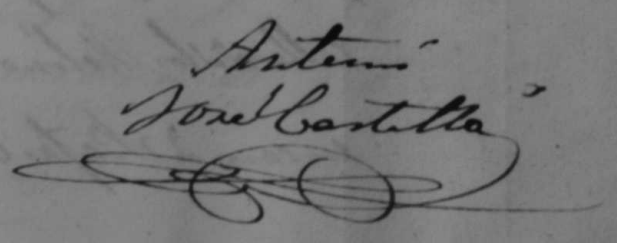 Antonio
José Castilla